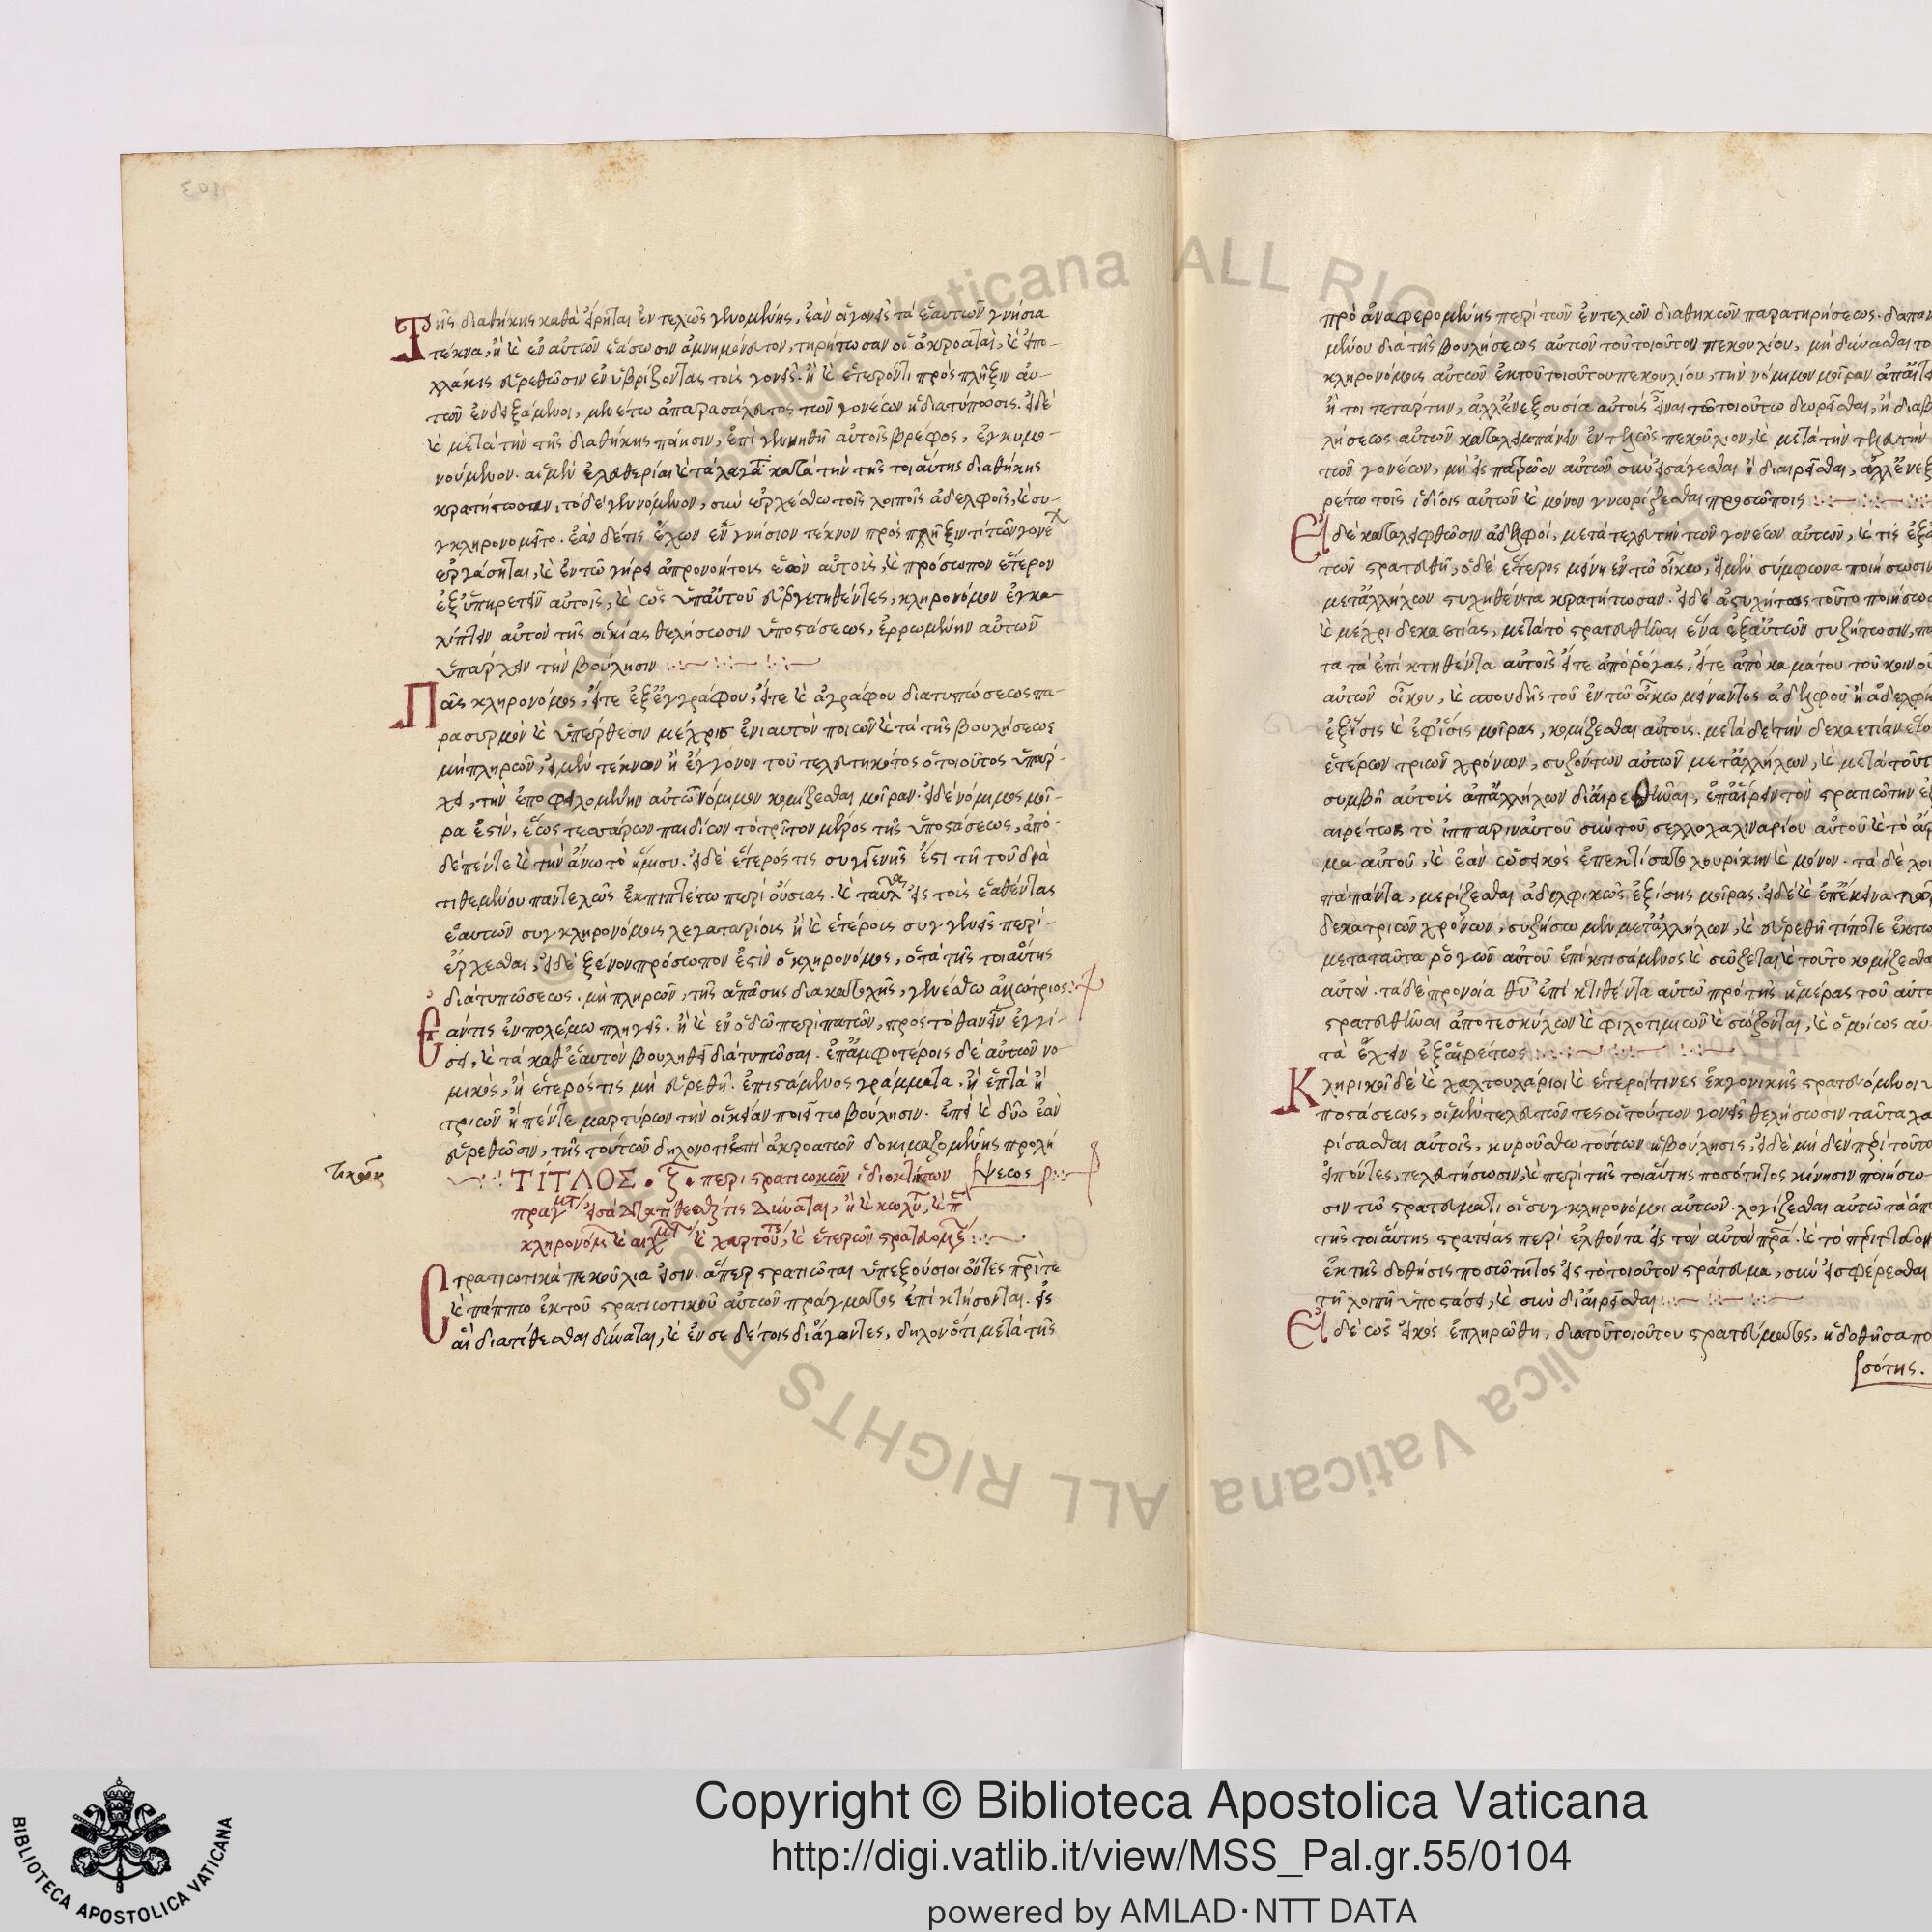 Τῆς διαθήκης καθὰ εἴρηται ἐν τελχῶς γενομένης, ἐὰν οἱ γονεῖς τὰ ἑαυτῶν γνήσια
τέκνα, ἢ καὶ ἓν αὐτῶν ἐάσωσιν ἀμνημόνευτον, τηρήτωσαν οἱ ἀκροαταὶ, καὶ εἰ πο-
λλάκις εὑρεθῶσιν ἐνυβρίζοντας τοὺς γονεῖς ἢ καὶ ἑτερόν τι πρὸς πλῆξιν αὐ-
τῶν ἐνδειξάμενοι, μενέτω ἀπαρασάλευτος τῶν γονέων ἡ διατύπωσις. εἰ δὲ
καὶ μετὰ τὴν τῆς διαθήκης ποίησιν, ἐπιγεννηθῆ αὐτοῖς βρέφος, ἐγκυμο-
νούμενον. αἱ μὲν ἐλευθερίαι καὶ τὰ ληγάτα κατὰ τὴν τῆς τοιαύτης διαθήκης
κρατήτωσαν, τὸ δὲ γεννόμενον, συνερχέσθω τοῖς λοιποῖς ἀδελφοῖς, καὶ συ-
γκληρονομείτο. ἐὰν δέ τις ἔχων ἓν γνήσιον τέκνον πρὸς πλῆξίν τι τῶν γονέ
ἐργάσηται, καὶ ἐν τῶ γήρει ἀπρονοήτους ἐὼν αὐτοὺς, καὶ πρόσωπον ἕτερον
ἐξυπηρετεῖν αὐτοῖς, καὶ ὡς ὑπ' αὐτοῦ εὐεργετηθέντες, κληρονόμον ἐγκα-
λίπειν αὐτὸν τῆς οἰκίας θελήσωσιν ὑποστάσεως, ἐρρωμένην αὐτῶν
ὑπάρχειν τὴν βούλησιν
Πᾶς κληρονόμος, εἴτε ἐξ ἐγγράφου, εἴτε καὶ ἀγράφου διατυπώσεως πα-
ρασυρμὸν καὶ ὑπέρθεσιν μέχρις ἐνιαυτὸν ποιῶν καὶ τὰ τῆς βουλήσεως
μὴ πληρῶν, εἰ μὲν τέκνων ἢ ἐγγόνον τοῦ τελευτηκότος ὁ τοιοῦτος ὑπάρ-
χει, τὴν ἐποφειλομένην αὐτῶ νόμιμον κομίζεσθαι μοῖραν. εἰ δὲ νόμιμος μοῖ-
ρα ἐστὶν, ἕως τεσσάρων παιδίων τὸ τρῖτον μέρος τῆς ὑποστάσεως, ἀπὸ
δὲ πέντε καὶ τὴν ἄνω τὸ ἥμισυ. εἰ δὲ ἕτερός τις συγγενὴς ἔστι τῆ τοῦ δια
τιθεμένου παντελῶς ἐκπιπτέτω περὶ οὐσίας. καὶ ταύτας εἰς τοὺς ἐαθέντας
ἑαυτῶν συγκληρονόμοις λεγαταρίοις ἢ καὶ ἑτέροις συγγενεῖς περι-
έρχεσθαι, εἰ δὲ ξένον πρόσωπον ἐστὶν ὁ κληρονόμος, ὁ τὰ τῆς τοιαύτης
διατυπώσεως μὴ πληρῶν, τῆς ἁπάσης διακατοχῆς, γενέσθω ἀλλότριος.
Ἐάν τις ἐν πολέμω πληγεῖς ἢ καὶ ἐν ὁδῶ περιπατῶν, πρὸς τὸ θανεῖν ἐγγί-
σει, καὶ τὰ καθ' ἑαυτὸν βουληθεῖ διατυπῶσαι. ἐπ' ἀμφοτέροις δὲ αὐτῶν νο-
μικὸς, ἢ ἕτερός τις μὴ εὑρεθῆ ἐπιστάμενος γράμματα, ἢ ἑπτὰ ἢ
τριῶν ἢ πέντε μαρτύρων τὴν οἰκείαν ποιείτω βούλησιν. ἐπεὶ καὶ δύο ἐὰν
εὑρεθῶσιν, τῆς τούτων δηλονοτι ἐπὶ ἀκροατῶν δοκιμαζομένης προλή
ψεως
ΤΙΤΛΟΣ . ζ . περὶ στρατιωκῶν ἰδιοκτήτων
Στρατιωτικὰ πεκούλια εἰσιν ἅπερ στρατιῶται ὑπεξούσιοι ὄντες πατρί τε
καὶ πάππω ἐκ τοῦ στρατιωτικοῦ αὐτῶν πράγματος ἐπικτήσονται. εἰς
ἃ διατίθεσθαι δύναται, δηλονότι μετὰ τῆς
πρὸ ἀναφερομένης περὶ τῶν ἐντελῶν διαθηκῶν παρατηρήσεως. δαπαν
μένου διὰ τῆς βουλήσεως αὐτῶν τοῦ τοιούτου πεκουλίου, μὴ δύνασθαι το
κληρονόμοις αὐτῶν ἐκ τοῦ τοιούτου πεκουλίου, τὴν νόμιμον μοῖραν ἀπαιτ
ἤτοι τετάρτην, ἀλλ' ἐν ἐξουσία αὐτοὺς εἶναι τῶ τοιούτω δωρεῖσθαι, ἢ διαβ
τῶν γονέων, μὴ εἰς πατρῶον αὐτῶν συνεισάγεσθαι ἢ διαιρεῖσθαι, ἀλλ' ἐν ἐξ
ρέτω τοῖς ἰδίοις αὐτῶν καὶ μόνον γνωρίζεσθαι προσώποις
Εἰ δὲ καταλειφθῶσιν ἀδελφοὶ, μετὰ τελευτὴν τῶν γονέων αὐτῶν, καὶ τίς ἐξ α
τῶν στρατευθῆ, ὁ δὲ ἕτερος μένη ἐν τῶ οἴκω, εἰ μὲν σύμφωνα ποιήσωσιν
μετ' ἀλλήλων στιχηθέντα κρατήτωσαν. εἰ δὲ ἀστιχήτως τοῦτο ποιήσωσ
καὶ μέχρι δεκαετίας, μετὰ τὸ στρατευθῆναι ἕνα ἐξ αὐτῶν συζήτωσιν, πα
τα τὰ ἐπικτηθέντα αὐτοῖς εἴτε ἀπὸ ῥόγας, εἴτε ἀπὸ καμάτου τοῦ κοινοῦ
αὐτῶν οἴκου, καὶ σπουδῆς τοῦ ἐν τῶ οἴκω μένοντος ἀδελφοῦ ἢ ἀδελφῆ
ἐξ ἴσις καὶ ἐφ' ἴσις μοῖρας, κομίζεσθαι αὐτούς. μετὰ δὲ τὴν δεκαετίαν
ἑτέρων τριῶν χρόνων, συζόντων αὐτῶν μετ' ἀλλήλων, καὶ μετὰ τοῦτ
συμβῆ αὐτοὺς ἀπ' ἀλλήλων διαιρεθῆναι, ἐπαίρειν τὸν στρατιώτην ἐξ
αιρέτως τὸ ἱππάριν αὐτοῦ σὺν τοῦ σελλοχαλιναρίου αὐτοῦ καὶ τὸ ἄρ
μα αὐτοῦ, καὶ ἐὰν ὡς εἰκὸς ἐπεκτίσατο λουρίκην καὶ μόνον. τὰ δὲ λοι
πὰ πάντα, μερίζεσθαι ἀδελφικῶς ἐξίσης μοίρας. εἰ δὲ καὶ ἐπέκεινα τῶν
δεκατριῶν χρόνων, συζήσω μὲν μετ' ἀλλήλων, καὶ εὑρεθῆ τίποτε ἐκ τω
μετὰ ταῦτα ῥογῶν αὐτοῦ ἐπικτισάμενος καὶ σώζεται καὶ τοῦτο κομίζεσθα
στρατευθῆναι ἀπό τε σκύλων καὶ φιλοτιμιῶν καὶ σώζονται, καὶ ὁμοίως αὐ
τὰ ἔχειν ἐξαιρέτως
Κληρικοὶ δὲ καὶ χαλτουλάριοι καὶ ἕτεροί τινες ἐκ γονικῆς στρατευόμενοι υ
ποστάσεως, οἱ μὲν τελευτῶντες οἱ τούτων γονεῖς θελήσωσιν ταῦτα χα
ρίσασθαι αὐτοῖς, κυρούσθω τούτων ἡ βούλησις, εἰ δὲ μηδὲν περὶ τοῦτο
εἰπόντες, τελευτήσωσιν, καὶ περὶ τῆς τοιαύτης ποσότητος κίνησιν ποιήσω-
σιν τῶ στρατεύματι οἱ συγκληρονόμοι αὐτῶν. λογίζεσθαι αὐτῶ τὰ ἀπ
ἐκ τῆς δοθήσις ποσότητος εἰς τὸ τοιοῦτον στράτευμα, συνεισφέρεσθαι
τῆ λοιπῆ ὑποστάσει, καὶ συνδιαιρεῖσθαι
Εἰ δὲ ὡς εἰκὸς ἐπληρώθη, διὰ τοῦ τοιούτου στρατεύματος, ἡ δοθῆσα πο
σότης.
Copyright © Biblioteca Apostolica Vaticana
http://digi.vatlib.it/view/MSS_Pal.gr.55/0104
powered by AMLAD·NTT DATA
BIBLIOTECA APOSTOLICA VATICANA